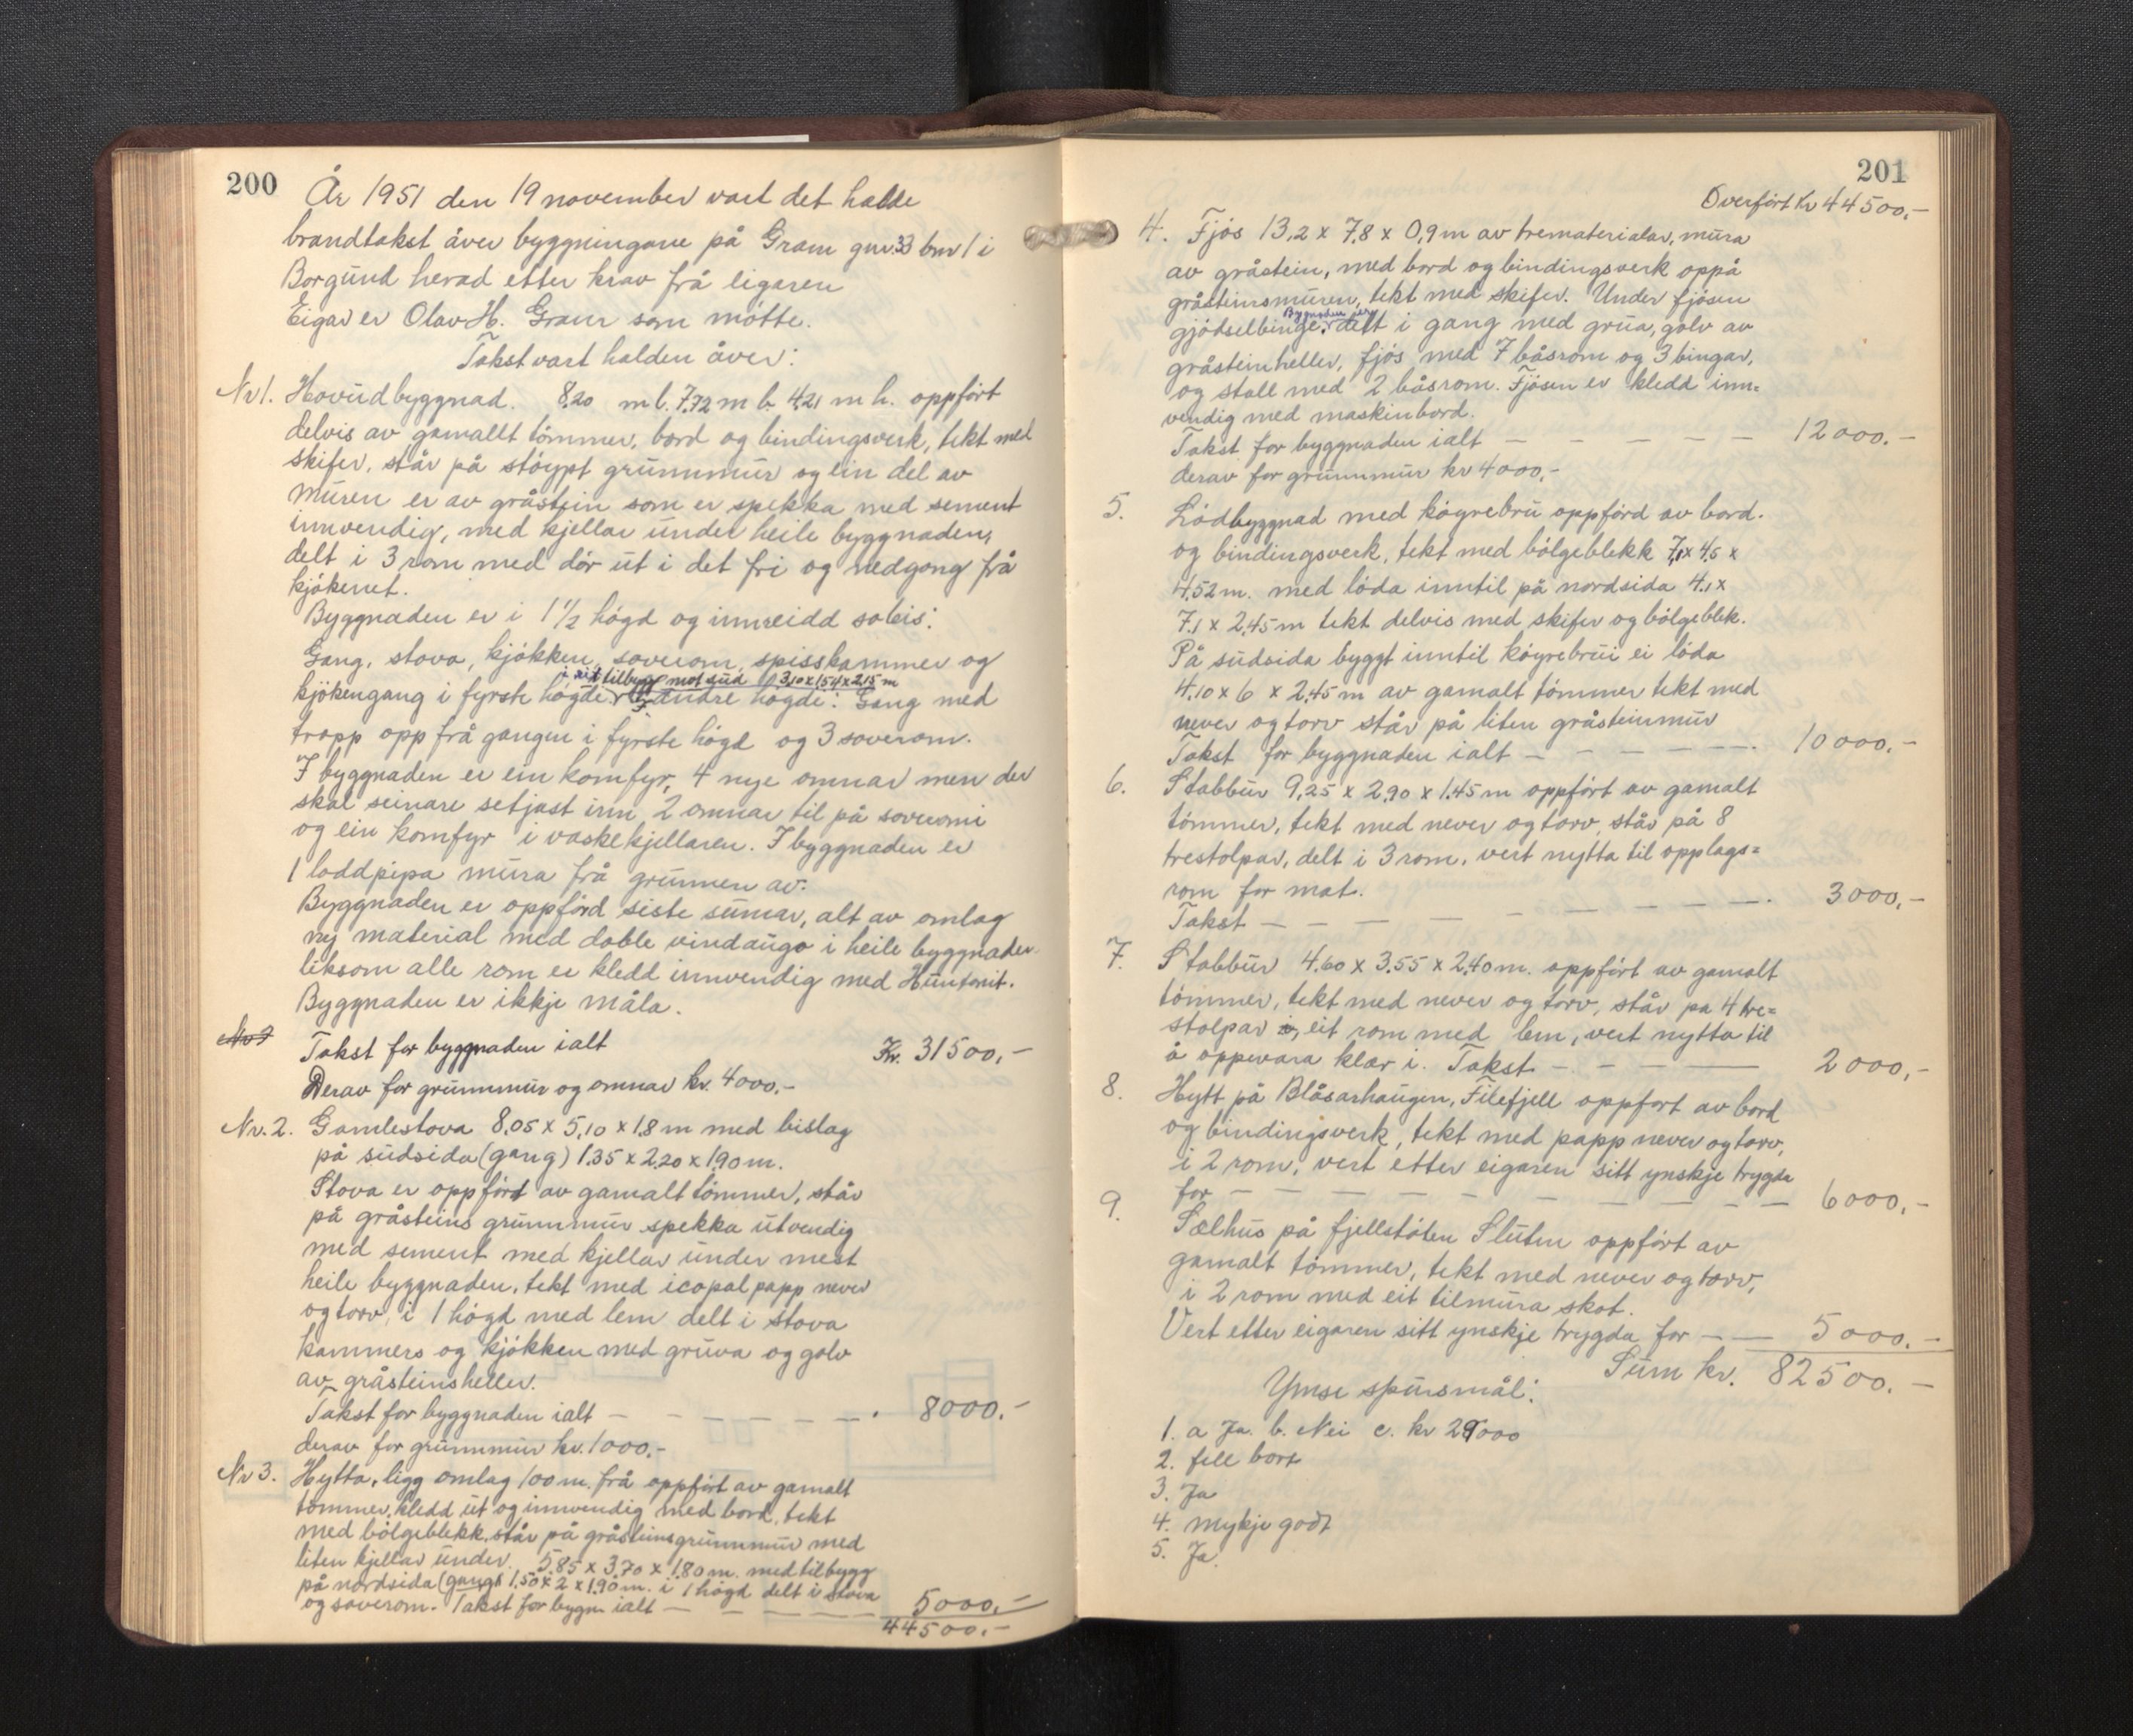 200
År 1951 den 19 november vart det halde
brandtakst åver byggningane på Gram gnr. 33 bnr 1 i
Borgund herad etter krav frå eigaren
Eigar er Olav H. Gram som møtte.
Takst vart halden åver:
Nr 1. Hovudbyggnad. 8,20 m l. 7,72 m b. 4,21 m h. oppført
delvis av gamallt tømmer, bord og bindingsverk, tekt med
skifer, står på støypt grunnmur og ein del av
muren er av gråstein som er spekka med sement
innvendig, med kjellar under heile byggnaden,
delt i 3 rom med dør ut i det fri og nedgong frå
kjøkenet.
Byggnaden er i 1 1/2 høgd og innreidd soleis:
Gang, stova, kjøkken, soverom, spisskammer og
i eit tilbygg mot sud 3,10x1,54x2,15 m
kjøkengang i fyrste høgdi. I andre høgdi: Gang med
trapp opp frå gangen i fyrste høgd og 3 soverom.
I byggnaden er ein komfyr, 4 nye omnar men der
skal seinare setjast inn 2 omnar til på soveromi
og ein komfyr i vaskekjellaren. I byggnaden er
1 loddpipa mura frå grunnen av.
Byggnaden er oppførd siste sumar, alt av omlag
ny material med doble vindaugo i heile byggnaden
liksom alle rom er kledd innvendig med Huntonit.
Byggnaden er ikkje måla.
Nr 2
Takst for byggnaden ialt Kr. 31500,-
Derav for grunnmur og omnar kr. 4000.-
Nr. 2. Gamlestova 8,05 x 5,10 x 1,8 m med bislag
på sudsida (gang) 1,35 x 2,20 x 1,90 m.
Stova er oppført av gamalt tømmer, står
på gråsteins grunnmur spekka utvendig
med sement med kjellar under mest
heile byggnaden, tekt med icopal papp never
og torv, i 1 høgd med lem delt i stova
kammers og kjøkken med gruva og golv
av gråsteinsheller.
Takst for byggnaden ialt — — — — — —. 8000.-
derav for grunnmur kr. 1000.-
Nr 3. Hytta, ligg omlag 100 m. frå oppført av gamalt
tømmer, kledd ut og innvendig med bord, tekt
med bølgeblekk, står på gråsteinsgrunnmur med
liten kjellar under. 5,85 x 3,70 x 1,80 m. med tilbygg
på nordsida (gang) 1,50 x 2 x 1,90 m. i 1 høgd delt i stova
og soverom. Takst for bygn ialt — — — — — 5000,-
44500,-
201
Overført kr 44500,-
4. Fjøs 13,2 x 7,8 x 0,9 m av trematerialar, mura
av gråstein, med bord og bindingsverk oppå
gråsteinsmuren, tekt med skifer. Under fjøsen
Byggnaden er
gjødselbinge. delt i gang med grua, golv av
gråsteinheller, fjøs med 7 båsrom og 3 bingar,
og stall med 2 båsrom. Fjøsen er kledd inn=
vendig med maskinbord.
Takst for byggnaden ialt — — — — — 12000.-
derav for grunnmur kr 4000,-
5. Lødbyggnad med køyrebru oppførd av bord.
og bindingsverk, tekt med bølgeblekk 7,1 x 4,5 x
4,52 m. med løda inntil på nordsida 4,1 x
7,1 x 2,45 m tekt delvis med skifer og bølgeblek.
På sudsida byggt inntil køyrebrui ei løda
4,10 x 6 x 2,45 m av gamalt tømmer tekt med
never og torv står på liten gråsteinmur
Takst for byggnaden ialt — — — — — —. 10000,-
6. Stabbur 9,25 x 2,90 x 1,45 m oppført av gamalt
tømmer, tekt med never og torv, står på 8
trestolpar, delt i 3 rom, vert nytta til opplags=
rom for mat.
Takst — — — — — — — — —. 3000,-
7. Stabbur 4,60 x 3,55 x 2,40 m. oppført av gamalt
tømmer, tekt med never og torv, står på 4 tre=
stolpar i, eit rom med lem, vert nytta til
å oppevara klær i. Takst — — — — 2000,-
8. Hytt på Blåsarhaugen, Filefjell oppført av bord
og bindingsverk, tekt med papp never og torv,
i 2 rom, vert etter eigaren sitt ynskje trygda
for — — — — — — — — — 6000,-
9. Sælhus på fjellstølen Sluten oppført av
gamalt tømmer, tekt med never og torv,
i 2 rom med eit tilmura skot.
Vert etter eigaren sitt ynskje trygda for — — 5000.-
Sum kr. 82500.-
Ymse spursmål:
1. a Ja. b. Nei c. kr 29000
2. fell bort
3. Ja
4. mykje godt
5. Ja.